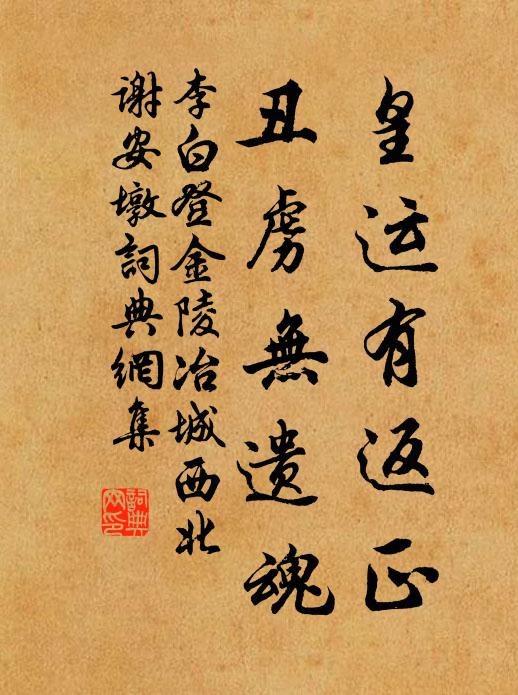 皇运有返正
丑虏無遗魂
李白登金陵冶城西北
谢安墩詞典網集
詞典
网印